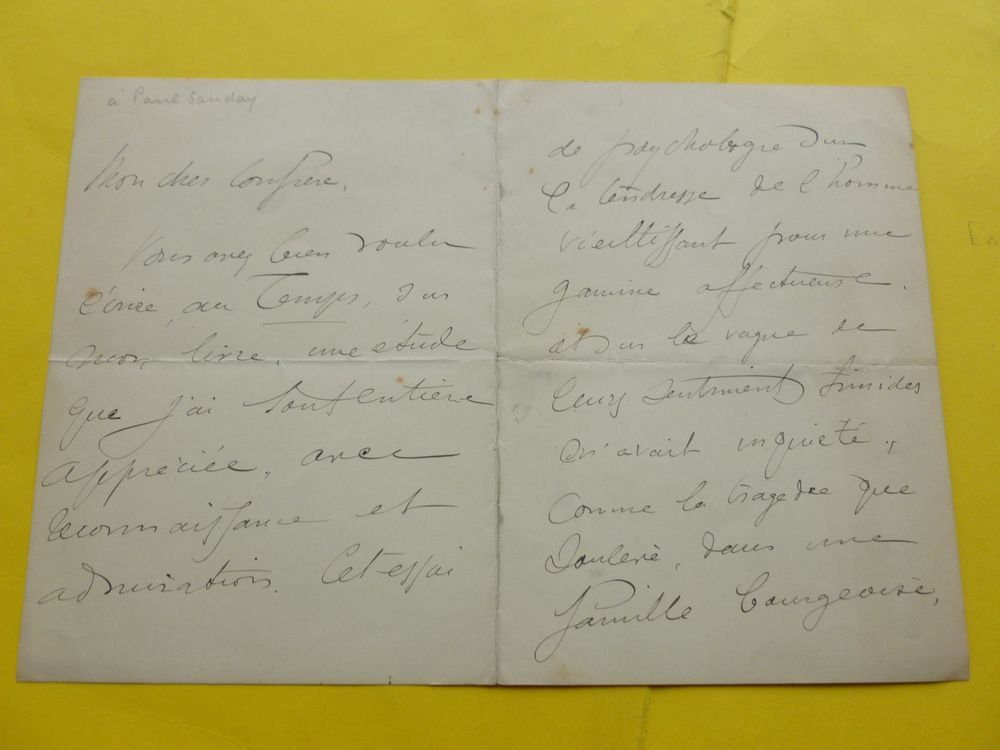 à Paul Souday
Mon cher Confrère,
Vous avez bien voulu
écrire, au Temps, sur
mon livre, une étude
que j'ai tout entière
appréciée, avec
reconnaissance et
admiration. Cet essai
de psychologie sur
la tendresse de l'homme
vieillissant pour une
gamine affectueuse.
et sur le vague de
leurs sentiments timides
m'avait inquiété,
comme la tragédie que
soulève, dans une
famille bourgeoise,
En